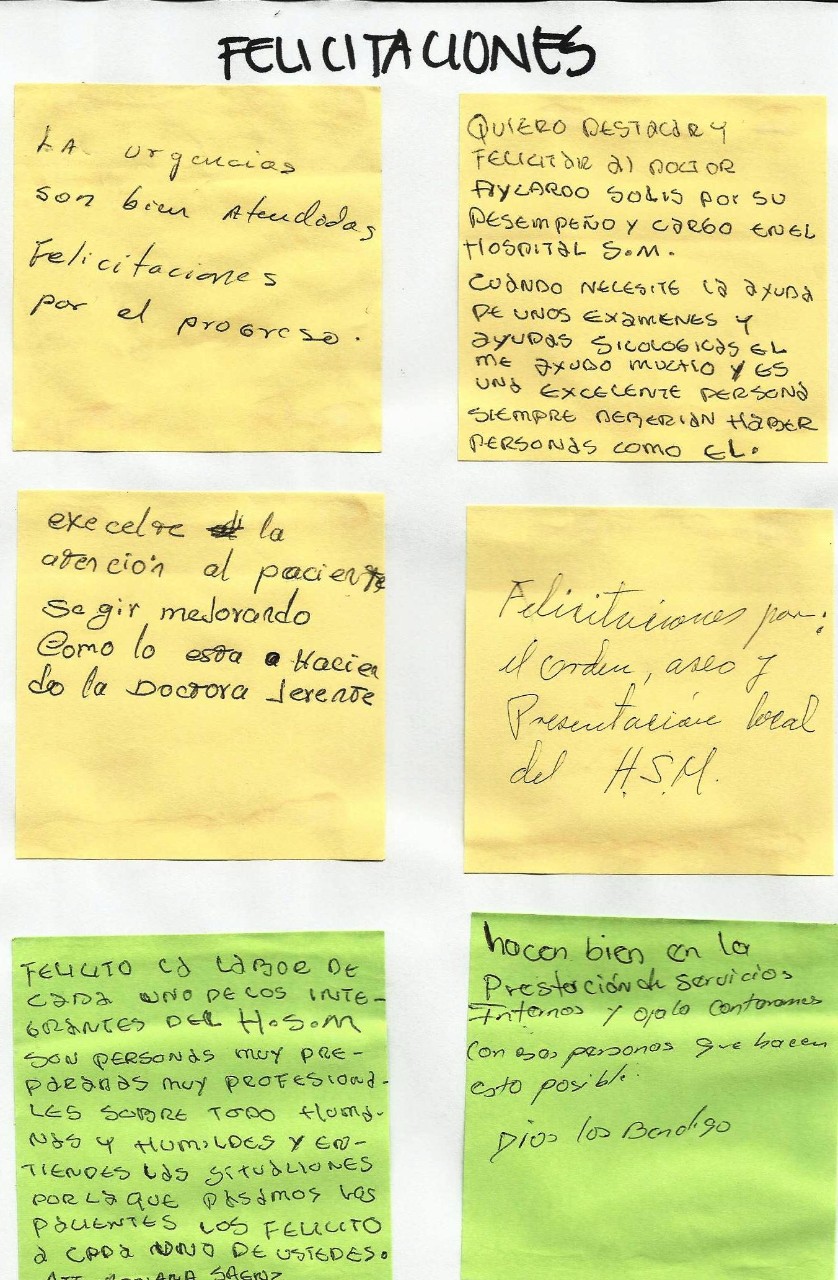 FELICITACIONES
LA urgencias
son bien Atendodas
Felicitaciones
por el progreso.
QUIERO DESTACAR Y
FELICITAR al DOCTOR
AYCARDO SOLIS POR SU
DESEMPEÑO Y CARGO EN EL
HOSPITAL S.M.
CUANDO NECESITE la AYUDA
DE UNOS EXAMENES Y
AYUDAS SICOLOGICAS EL
ME AYUDO MUCHO Y ES
UNA EXCELENTE PERSONA
SIEMPRE DEBERIAN HABER
PERSONAS COMO EL.
execelte la
atención al paciente
segir mejorando
Como lo esta Hacien
do la Doctora Jerente
Felicitaciones por:
el orden, aseo y
Presentación local
del H.S.M.
FELICITO LA LABOR DE
CADA UNO DE LOS INTE-
GRANTES DEL H.S.M
SON PERSONAS MUY PRE-
PARADAS MUY PROFESIONA-
LES SOBRE TODO HUMA-
NAS Y HUMILDES Y EN-
TIENDES LAS SITUACIONES
POR LA QUE PASAMOS LOS
PACIENTES LOS FELICITO
A CADA UNO DE USTEDES.
ATT ADRIANA SAENZ
hacen bien en la
Prestación de servicios
Internos y ojala contaramos
con esas personas que hacen
esto posible.
Dios los Bendiga